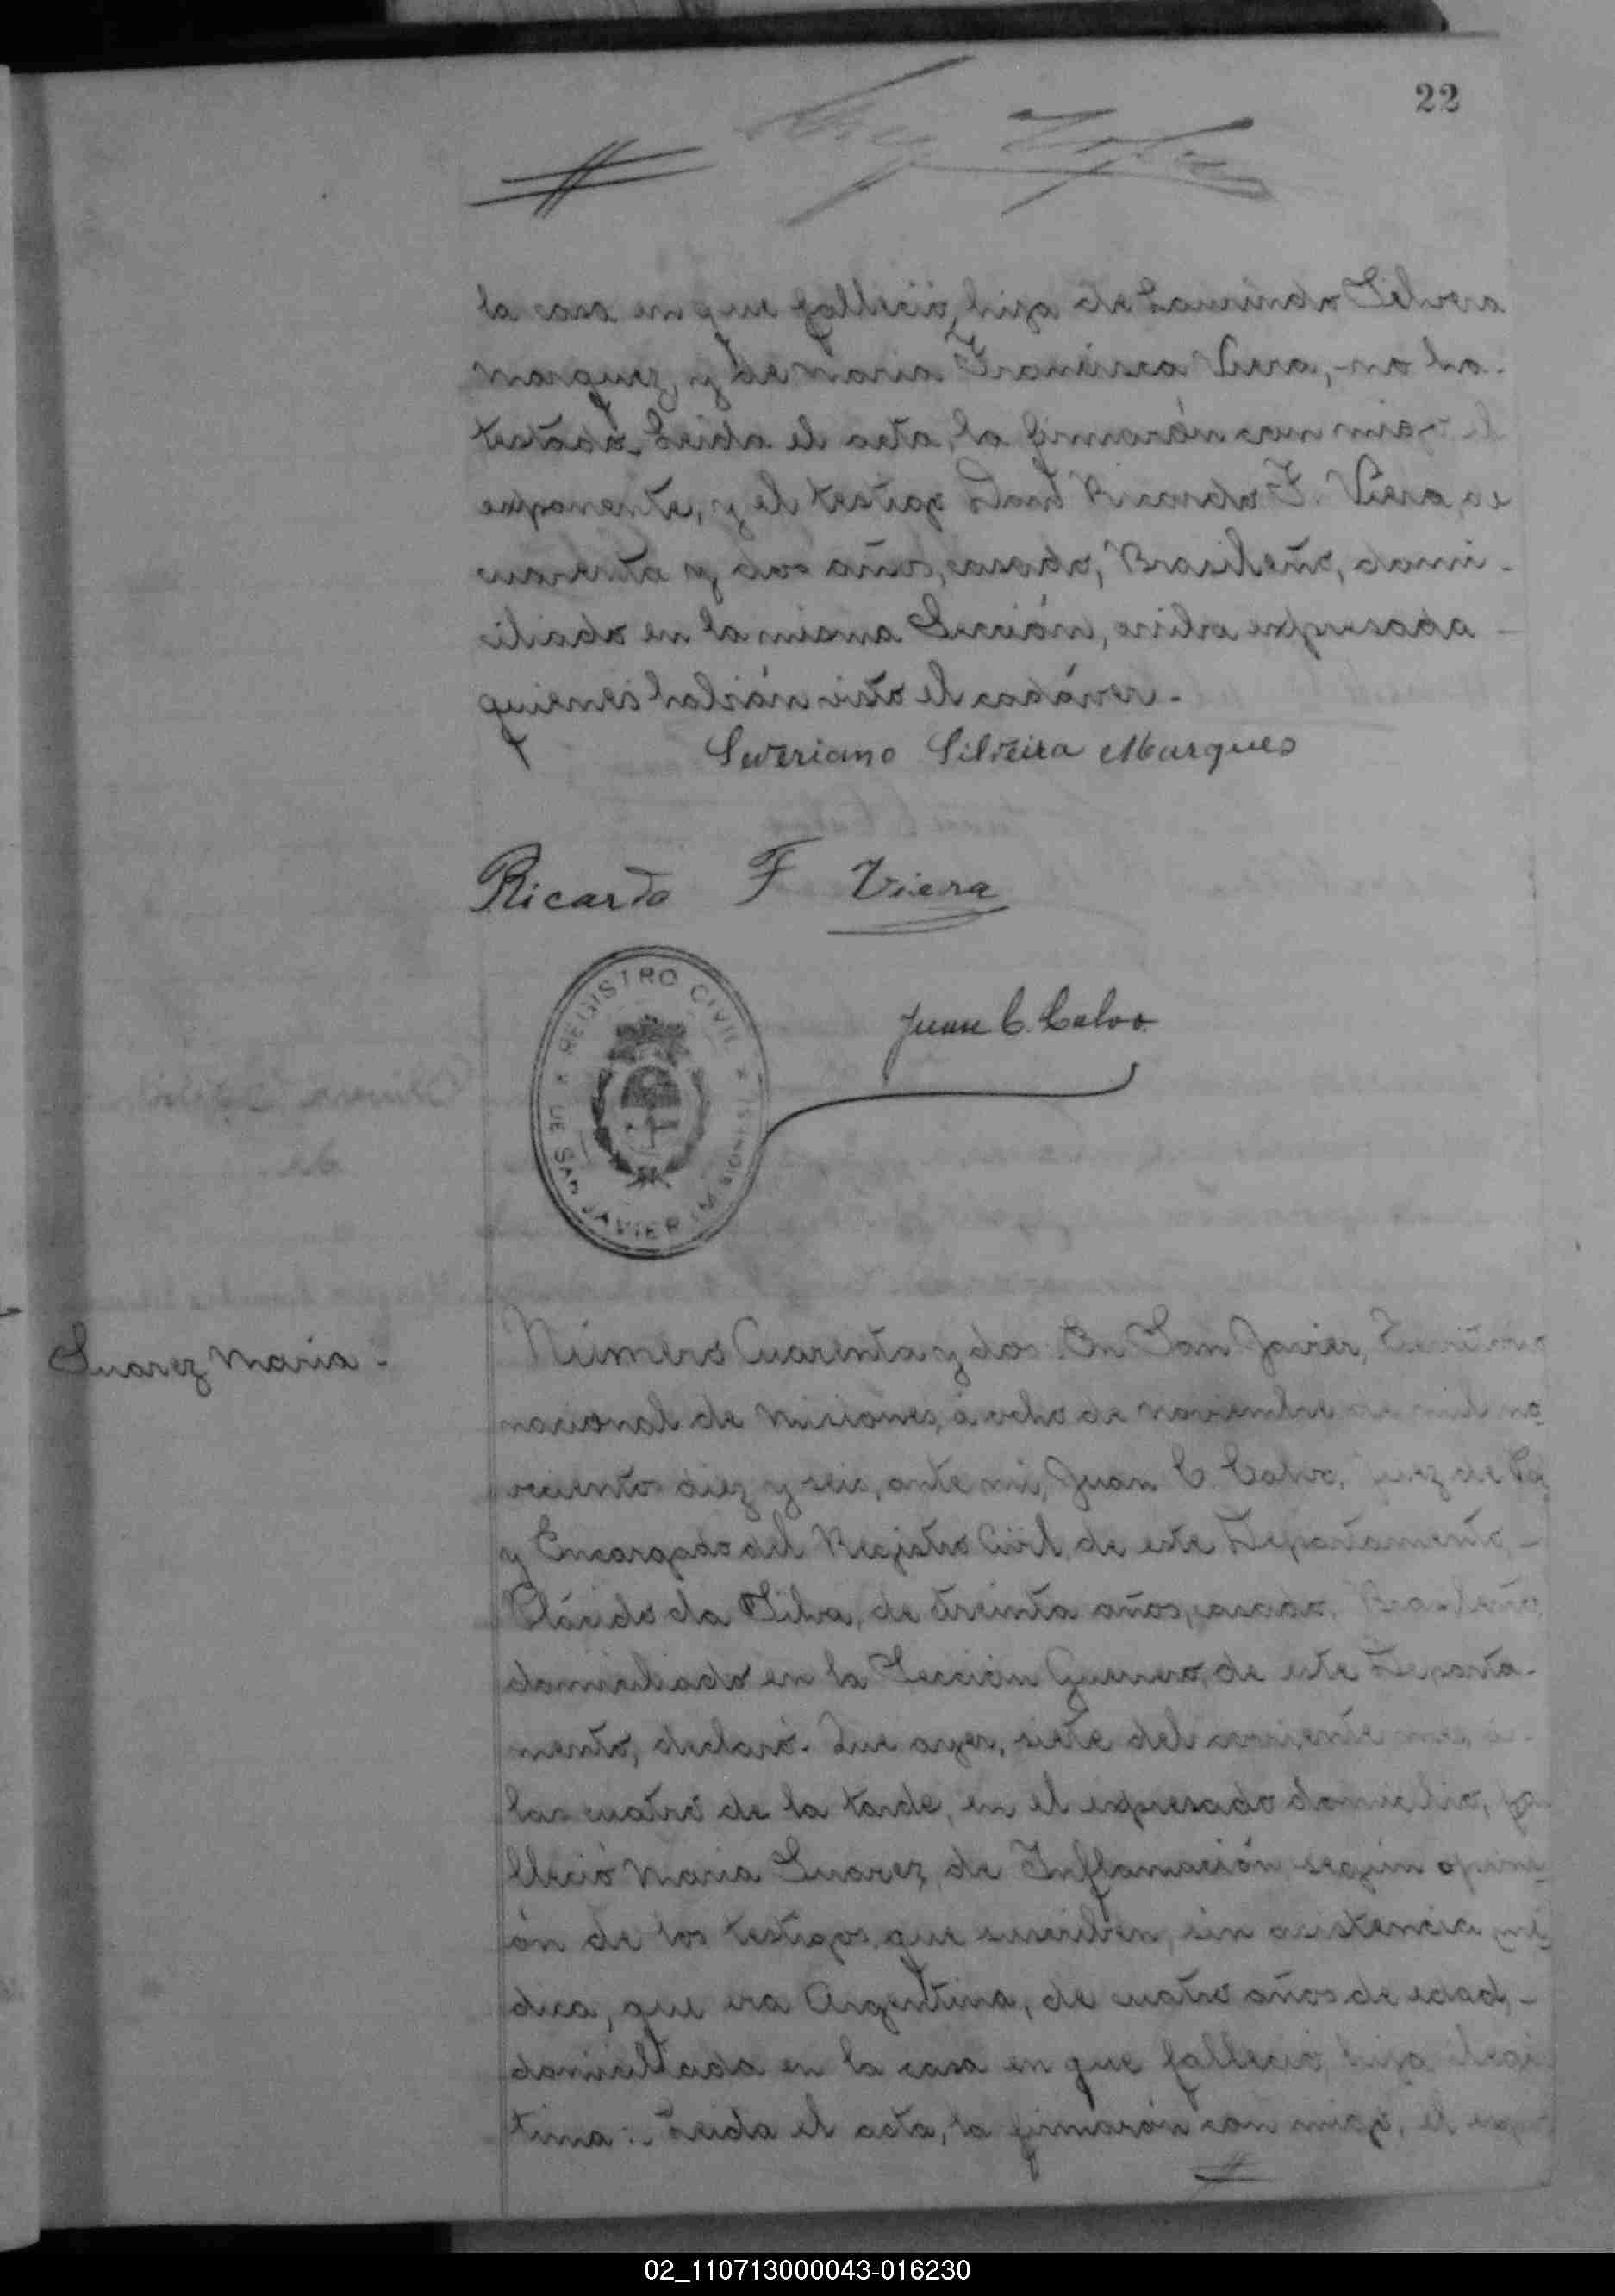 22
la casa en que falleció, hija de Laurindo Silvera
Marquez, y de Maria Francisca Viera, no ha
testado. Leida el acta, la firmarón conmigo, el
exponente, y el testigo Ricardo F. Viera, de
cuarenta y dos años, casado, Brasileño, domi-
ciliado en la misma Sección, arriba expresada
quienes habián visto el cadáver.
Severiano Silveira Marques
Ricardo F Viera
REGISTRO CIVIL
DE SAN JAVIER (MISIONES)
Juan C. Calvo.
Suarez Maria.
Número Cuarenta y dos. En San Javier, Territorio
nacional de Misiones, á ocho de Noviembre de mil no
vecientos diez y seis, ante mi, Juan C. Calvo, Juez de Paz
y Encargado del Registro Civil, de este Departamento,-
Plácido da Silva, de treinta años, casado, Brasileño
domiciliado en la Sección Guerrero, de este Departa-
mento, declaró. Que ayer, siete del corriente mes, á
las cuatro de la tarde, en el expresado domicilio, fa
lleció Maria Suarez, de Inflamación, según opini
ón de los testigos que suscriben, sin asistencia mé
dica, que era Argentina, de cuatro años de edad,-
domiciliada en la casa en que falleció, hija ilegi
tima. Leida el acta, la firmarón conmigo, el
02_110713000043-016230